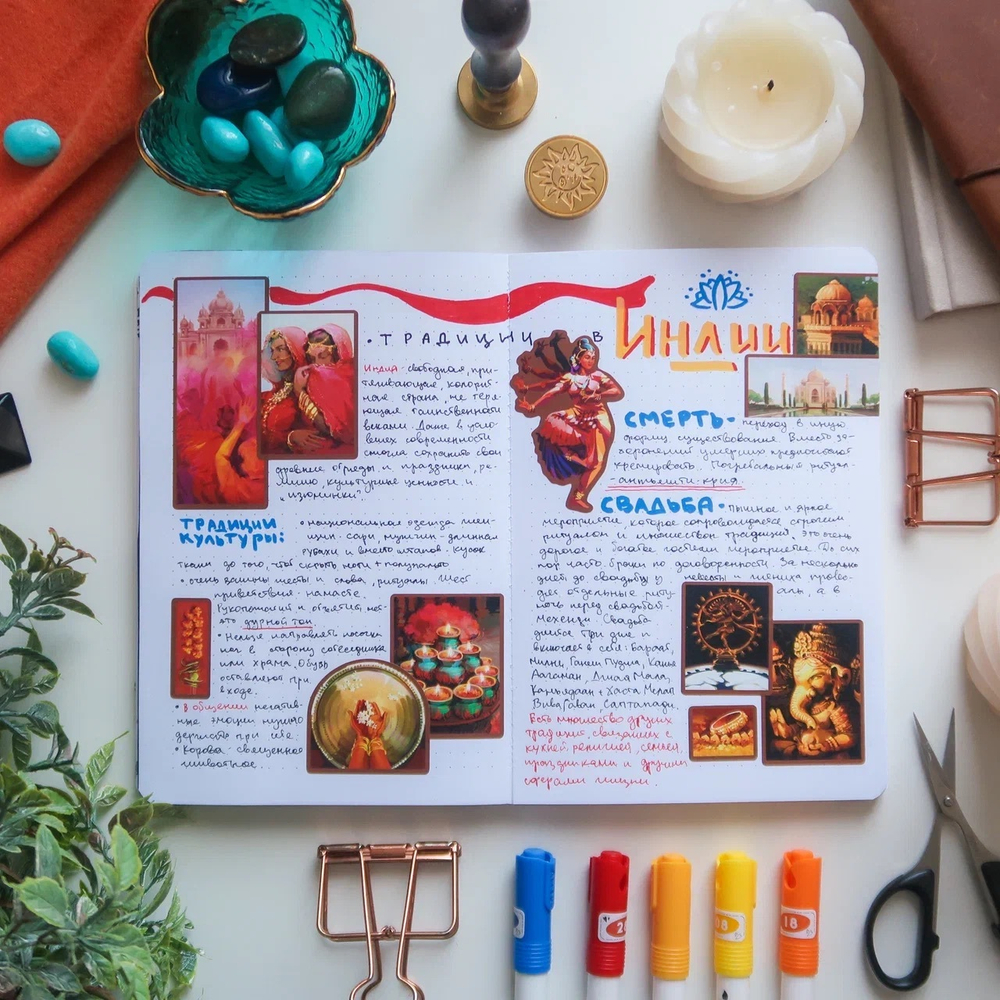 • ТРАДИЦИИ В ИНДИИ
Индия - свободная, при-
тягивающая, колорит-
ная страна, не теря-
ющая таинственности
веками. Даже в усло-
виях современности
смогла сохранить свои
древние обряды и праздники, ре-
лигию, культурные ценности и
"изюминки".
ТРАДИЦИИ
КУЛЬТУРЫ:
• национальная одежда жен-
щин - сари, мужчин - длинная
рубаха и вместо штанов - кусок
ткани до того, чтоб скрыть ноги +
• очень важны жесты и слова, ритуалы. Жест
приветствия - намасте.
Рукопожатия и объятия,
это дурной тон
• Нельзя направлять носочки
ног в сторону собеседника
или храма. Обувь
оставляют при
входе.
• В общении негатив-
ные эмоции нужно
держать при себе.
• Корова - священное
животное.
СМЕРТЬ - переход в иную
форму существования. Вместо за-
хоронений умерших предпочитают
кремировать. Погребальный ритуал -
- антьешти-крия.
СВАДЬБА • пышное и яркое
мероприятие, которое сопровождается строгим
ритуалом и множеством традиций. Это очень
дорогое и богатое гостями мероприятие. До сих
пор часто браки по договоренности. За несколько
дней до свадьбы у невесты и жениха прово-
дят отдельные риту- алы, а в
ночь перед свадьбой -
мехенди. Свадьба
длится три дня и
включает в себя: Бараат,
Милни, Ганеш Пуджа, Канья
Аагаман, Джай Мала,
Каньядаан + Хаста Мелап,
Саптапади.
Есть множество других
традиций, связанных с
кухней, религией, семьей,
праздниками и другими
сферами жизни.
18